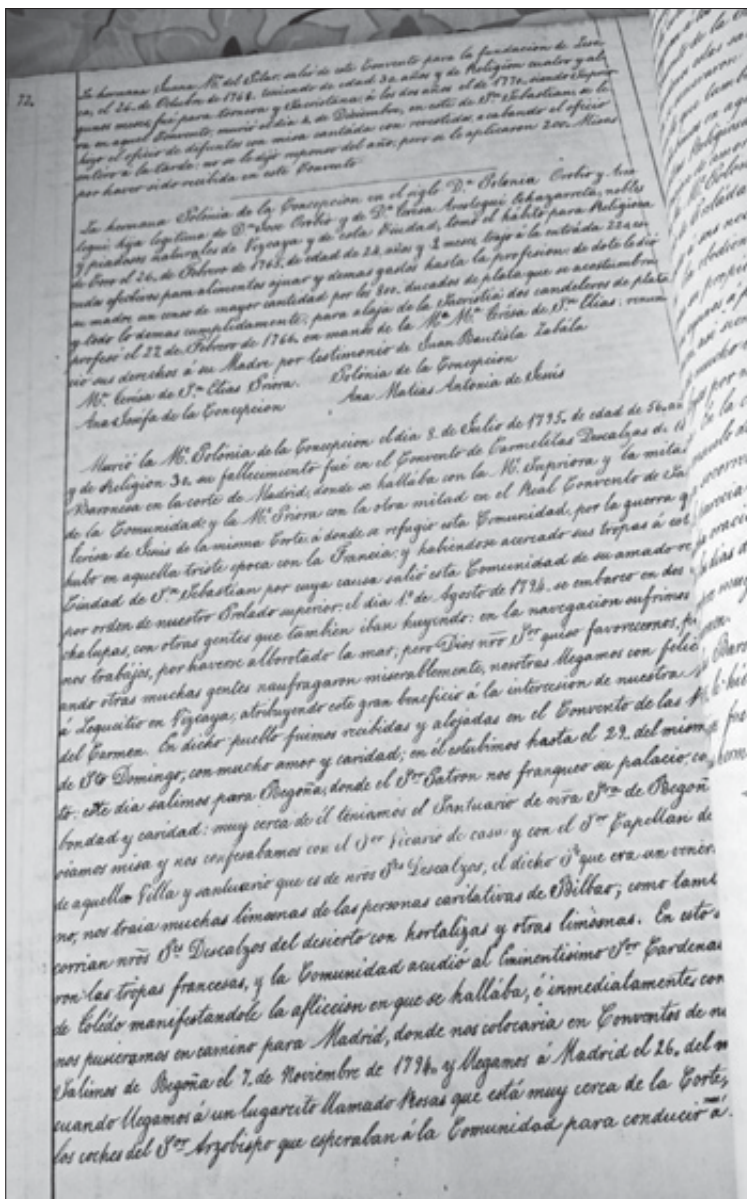 72.
La hermana Juana Mª. del Pilar, salió de este Convento para la fundacion de
a, el 26. de Octubre de 1768, teniendo de edad 30 años y de Religion cuatro y al-
gunos meses, fué para tornera y Sacristana, á los dos años el de 1770, siendo Superio-
ra en aquel Convento, murió el dia 4 de Diciembre, en este de Sn. Sebastian, se le
hizo el oficio de defuntos con misa cantada con revestidos, acabando el oficio
entero á la tarde: no se le dijo responso del año, pero se le aplicaron 200. Misas
por haver sido recibida en este Convento
La hermana Polonia de la Concepcion en el siglo Dª. Polonia Orobio y Aros-
tegui hija legitima de Dn. Jose Orobio y de Dª. Teresa Arostegui Echazarreta, nobles
y piadosos naturales de Vizcaya y de esta Ciudad, tomó el hábito para Religiosa
de Coro el 26. de Febrero de 1765, de edad de 24. años y 2 meses, trajo á la entrada 22 es-
cudos efectivos para alimentos ajuar y demas gastos hasta la profesion, de dote le dió
su madre, un censo de mayor cantidad por los 800. ducados de plata que se acostumbra
y todo lo demas cumplidamente, para alaja de la Sacristia dos candeleros de plata
profesó el 27. de Febrero de 1766, en manos de la Mª. Mª. Teresa de Sn. Elias: renun-
ció sus derechos á su Madre por testimonio de Juan Bautista Zabála
Mª. Teresa de Sn. Elias Priora. Polónia de la Concepcion
Ana Josefa de la Concepcion Ana Matias Antonia de Jesús
Murió la Mª. Polónia de la Concepcion el dia 8. de Julio de 1795. de edad de 54. añ
y de Religion 30. su fallecimiento fué en el Convento de Carmelitas Descalzas de l
Baronesa en la corte de Madrid, donde se hallába con la Mª. Supriora y la mitad
de la Comunidad, y la Mª. Priora con la otra mitad en el Real Convento de Sa
Teresa de Jesús de la misma Corte, á donde se refugio esta Comunidad, por la guerra q
hubo en aquella triste epoca con la Francia; y habiendose acercado sus tropas á est
Ciudad de Sn. Sebastian por cuya causa salió esta Comunidad de su amado re
por orden de nuestro Prelado superior: el dia 1º. de Agosto de 1794. se embarco en dos
chalupas, con otras gentes que tambien iban huyendo: en la navegacion sufrimos
nos trabajos, por haverse alborotado la mar; pero Dios nrõ Sor quiso favorecernos, p
ando otras muchas gentes naufragaron miserablemente, nosotras llegamos con felic
á Lequeitio en Vizcaya, atribuyendo este gran beneficio á la intercesion de nuestra
del Carmen. En dicho pueblo fuimos recibidas y alojadas en el Convento de las
de Sto Domingo, con mucho amor y caridad; en él estubimos hasta el 29. del mism
to: este dia salimos para Begoña, donde el Sor Patron nos franqueo su palacio, co
bondad y caridad: muy cerca de él teniamos el Santuario de nrã Sra de Begoñ
oiamos misa y nos confesabamos con el Sor Vicario de casa y con el Sor Capellan de
de aquella Villa y santuario que es de nrõs Ps. Descalzos, el dicho Sr. que era un vener
no, nos traia muchas limosnas de las personas caritativas de Bilbao, como tambi
corrian nrõs Ps. Descalzos del desierto con hortalizas y otras limosnas. En esto
ron las tropas francesas, y la Comunidad acudió al Eminentisimo Sor Cardenal
de Toledo manifestandole la afliccion en que se hallába, é inmediatamente, con
nos pusieramos en camino para Madrid, donde nos colocaria en Conventos de n
Salimos de Begoña el 7. de Noviembre de 1794. y llegamos á Madrid el 26. del m
cuando llegamos á un lugarcito llamado Rosas que está muy cerca de la Corte,
los coches del Sor Arzobispo que esperaban á la Comunidad para conducir á